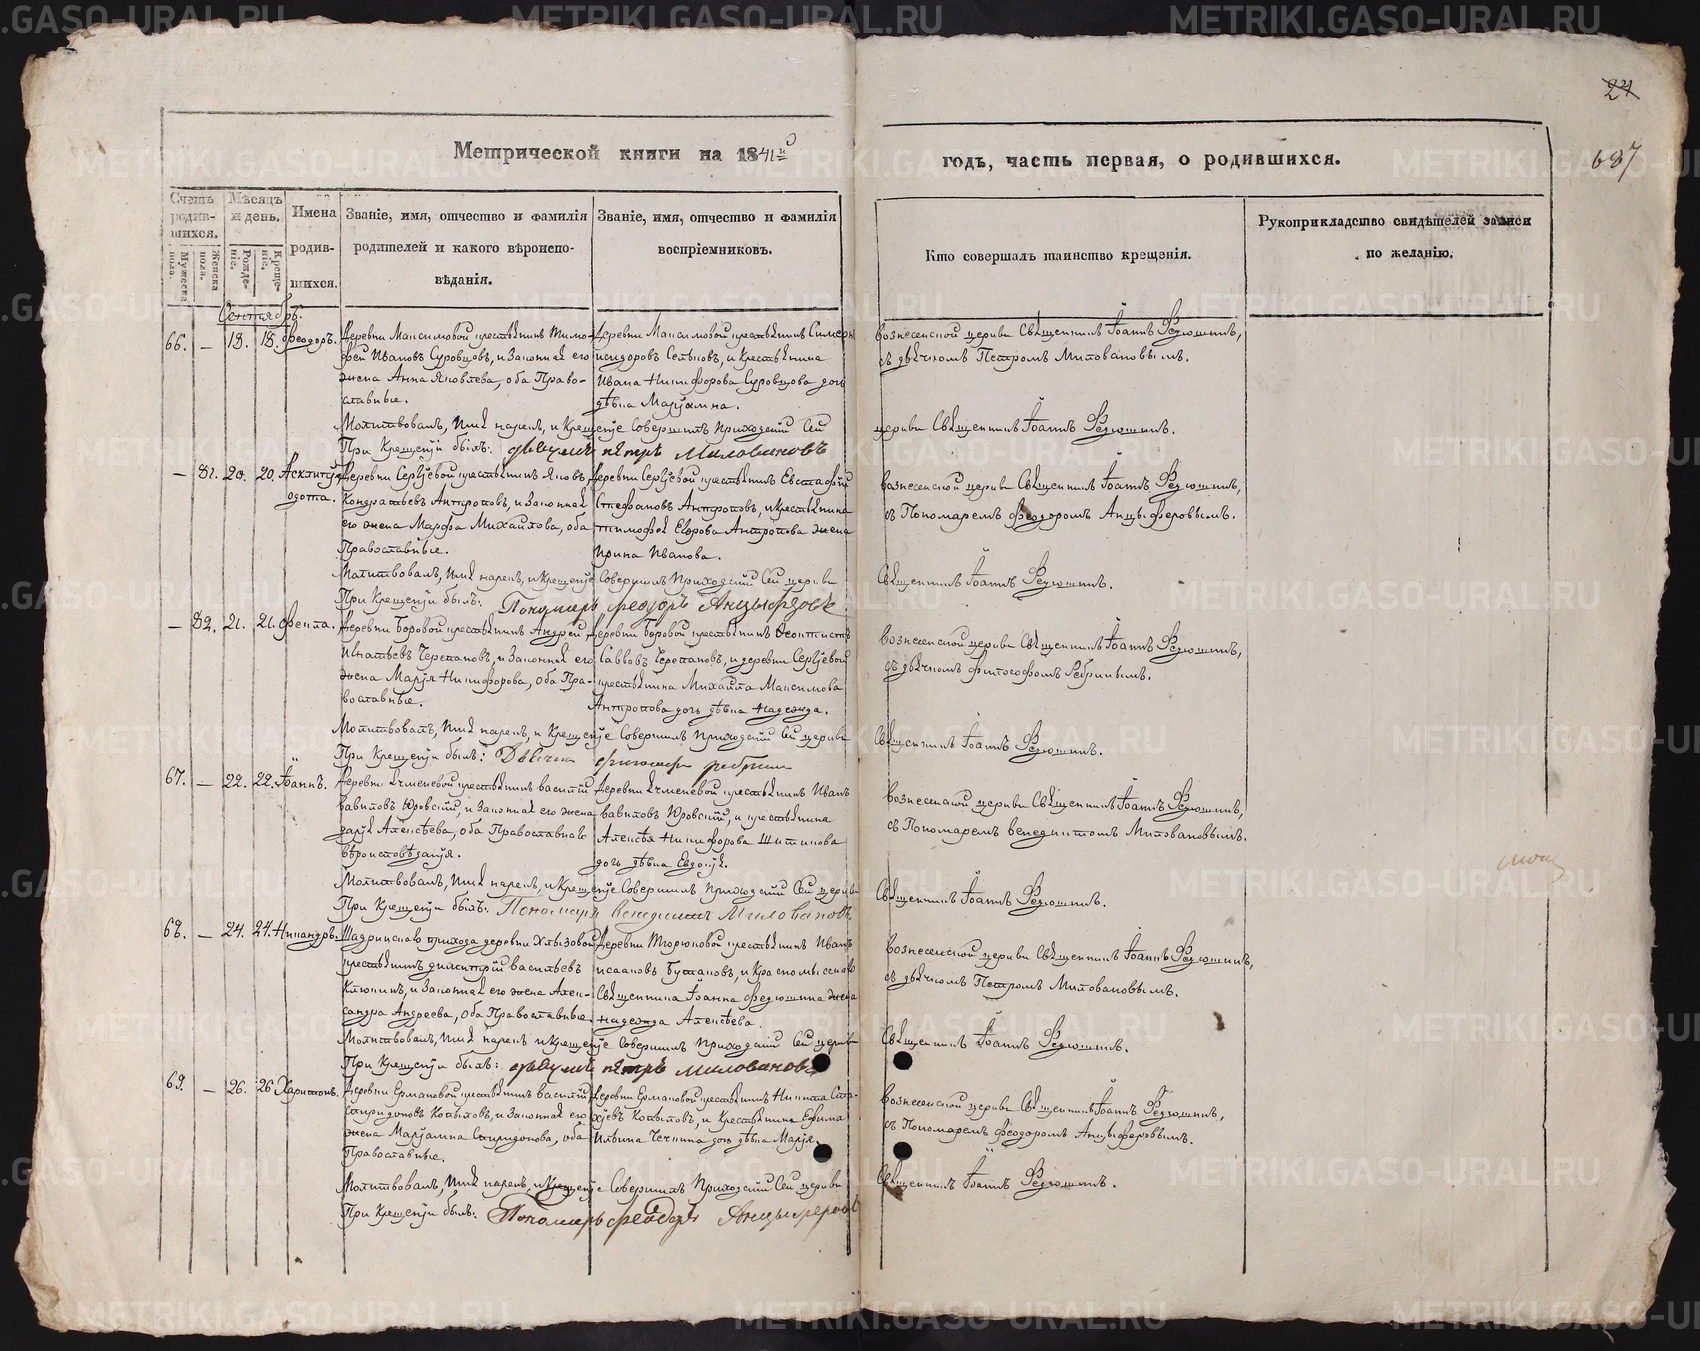 24
637
Метрической книги на 1841й
годъ, часть первая, о родившихся.
Счетъ родив-шихся.
Мужеска пола.
Женска пола.
Мѣсяцъ и день.
Рожде-ніе.
Креще-ніе.
Имена родив-шихся.
Званіе, имя, отчество и фамилія родителей и какого вѣроиспо-вѣданія.
Званіе, имя, отчество и фамилія воспріемниковъ.
Кто совершалъ таинство крещенія.
Рукоприкладство свидѣтелей записи по желанію.
Сентябрь.
66. — 18. 18. Феодоръ.
Деревни Максимовой крестьянинъ Тимо-
фей Ивановъ Суровцовъ, и Законная его
жена Анна Яковлева, оба Право-
славные.
Деревни Максимовой крестьянинъ
Исидоровъ, и Крестьянина
Ивана Никифорова Суровцова дочь
дѣвка Маріамна.
Вознесенской церкви Священникъ Іоаннъ Федюшинъ,
съ дьячкомъ Петромъ Миловановымъ.
Молитвовалъ, Имя нарекъ, и Крещеніе Совершилъ Приходскій Сей церкви Священникъ Іоаннъ Федюшинъ.
При Крещеніи былъ: дьячекъ петръ Миловановъ
— 81. 20. 20.
Деревни Сергіевой крестьянинъ Яковъ
Кондратьевъ Антроповъ, и Законная
его жена Марфа Михайлова, оба
Православные.
Деревни Сергіевой крестьянинъ Евстафій
Стефановъ Антроповъ, и крестьянина
Тимофея Егорова Антропова жена
Ирина Иванова.
Вознесенской церкви Священникъ Іоаннъ Федюшинъ,
съ Пономаремъ Феодоромъ Анцыферовымъ.
Молитвовалъ, Имя нарекъ, и Крещеніе Совершилъ Приходскій Сей церкви Священникъ Іоаннъ Федюшинъ.
При Крещеніи былъ: Пономарь феодоръ Анцыферовъ
— 82. 21. 21. Фекла.
Деревни Боровой крестьянинъ Андрей
Игнатьевъ Черепановъ, и Законная его
жена Марія Никифорова, оба Пра-
вославные.
Деревни Боровой крестьянинъ Феоктистъ
Савовъ Черепановъ, и деревни Сергіевой
крестьянина Михайла Максимова
Антропова дочь дѣвка Надежда.
Вознесенской церкви Священникъ Іоаннъ Федюшинъ,
съ дьячкомъ Философомъ Ребринымъ.
Молитвовалъ, Имя нарекъ, и Крещеніе Совершилъ Приходскій Сей церкви Священникъ Іоаннъ Федюшинъ.
При Крещеніи былъ: Дьячекъ
67. — 22. 22. Іоаннъ.
Деревни Ячменевой крестьянинъ Василій
Вавиловъ Юровскій, и Законная его жена
Дарья Алексѣева, оба Православнаго
вѣроисповѣданія.
Деревни Ячменевой крестьянинъ Иванъ
Вавиловъ Юровскій, и крестьянина
Алексѣя Никифорова Шитикова
дочь дѣвка Евдокія.
Вознесенской церкви Священникъ Іоаннъ Федюшинъ,
съ Пономаремъ Венедиктомъ Миловановымъ.
Молитвовалъ, Имя нарекъ, и Крещеніе Совершилъ Приходскій Сей церкви Священникъ Іоаннъ Федюшинъ.
При Крещеніи былъ: Пономарь Венедиктъ Миловановъ
68. — 24. 24. Никандръ.
Шадринскаго прихода деревни Хлызовой
крестьянинъ Димитрій Васильевъ
Клюкинъ, и Законная его жена Алек-
сандра Андреева, оба Православные.
Деревни крестьянинъ Иванъ
Исааковъ Булаковъ, и
Священника Іоанна Федюшина жена
Надежда Алексѣева.
Вознесенской церкви Священникъ Іоаннъ Федюшинъ,
съ дьячкомъ Петромъ Миловановымъ.
Молитвовалъ, Имя нарекъ и Крещеніе Совершилъ Приходскій Сей церкви Священникъ Іоаннъ Федюшинъ.
При Крещеніи былъ: дьячекъ петръ миловановъ
69. — 26. 26 Харитонъ.
Деревни Ермаковой крестьянинъ Василій
Спиридоновъ Копыловъ, и Законная его
жена Маріамна Спиридонова, оба
Православные.
Деревни Ермаковой крестьянинъ Никита
Копыловъ, и Крестьянина Ефима
Ильина дочь дѣвка Марія.
Вознесенской церкви Священникъ Іоаннъ Федюшинъ,
съ Пономаремъ Феодоромъ Анцыферовымъ.
Молитвовалъ, Имя нарекъ, и Крещеніе Совершилъ Приходскій Сей церкви Священникъ Іоаннъ Федюшинъ.
При Крещеніи былъ: Пономарь феодоръ Анцыферовъ
METRIKI.GASO-URAL.RU